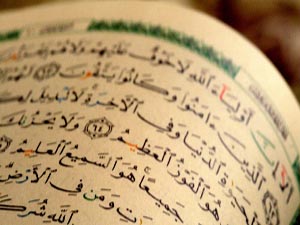 أَوْلِيَآءَ ٱللَّهِ لَا خَوْفٌ عَلَيْهِمْ وَلَا هُمْ
ٱلَّذِينَ ءَامَنُوا۟ وَكَانُوا۟ يَتَّقُونَ ٦٣
ٱلْحَيَوٰةِ ٱلدُّنْيَا وَفِى ٱلْـَٔاخِرَةِ لَا تَبْدِيلَ
هُوَ ٱلْفَوْزُ ٱلْعَظِيمُ ٦٤ وَلَا يَحْزُنكَ
جَمِيعًا هُوَ ٱلسَّمِيعُ ٱلْعَلِيمُ
وَمَن فِى ٱلْأَرْضِ
ٱللَّهِ